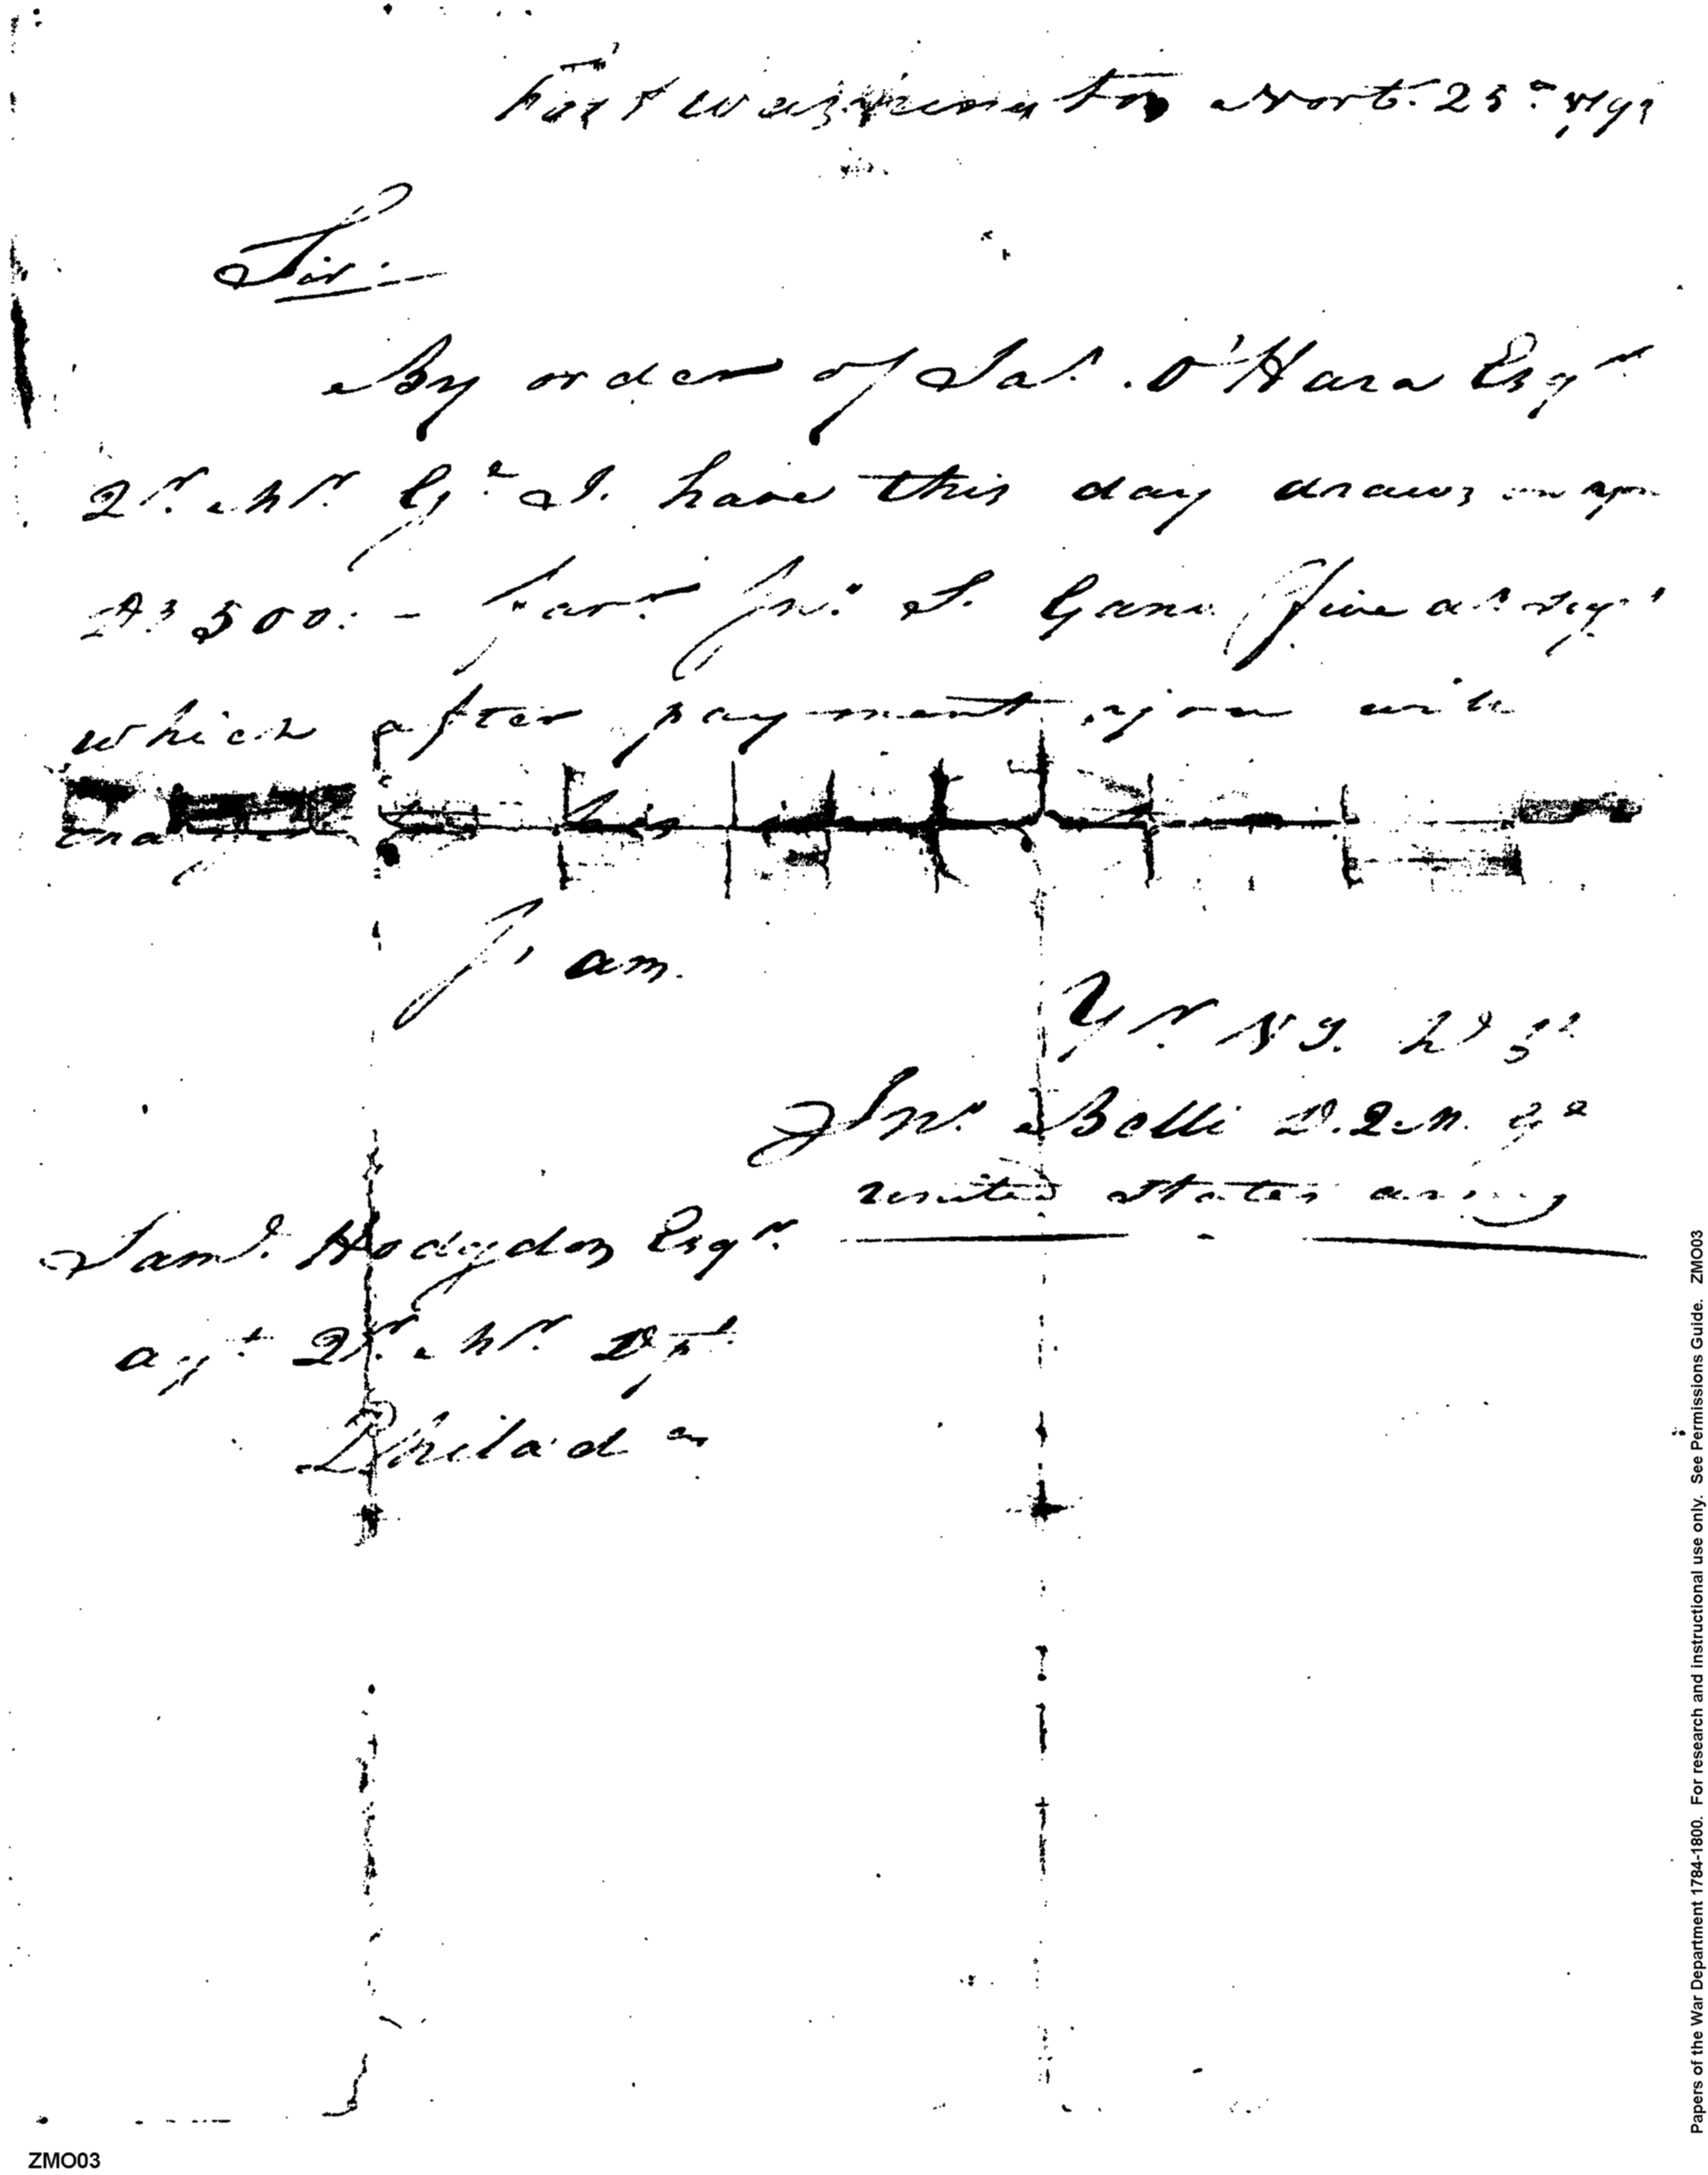 Fort Washington Novr. 25th
Sir.
By order of Jas. O'Hara Esqr
Qr. Mr. Gl. I have this day drawn on you
Ds 500: – favr. Jno. S. Gano five days
which after payment you will
this
I am.
Yr. Hb
Jno. Belli D.Q.M. Gl
United States army
Saml. Hodgdon Esqr.
agt Qr. Mr. Dpt.
Philada
Papers of the War Department 1784-1800. For research and instructional use only. See Permissions Guide. ZMO03
ZMO03